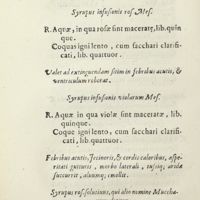 Syrupus infusionis ros. Mes.
R. Aquæ, in qua rosæ sint maceratæ, lib. quin
que.
Coquas igni lento, cum sacchari clarifi-
cati, lib. quattuor.
Valet ad extinguendam sitim in febribus acutis, &
ventriculum roborat.
Syrupus infusionis violarum Mes.
R. Aquæ in qua violæ sint maceratæ, lib.
quinque.
Coque igni lento, cum sacchari clarifi-
cati, lib. quattuor.
Febribus acutis, Iecinoris, & cordis caloribus, aspe-
ritati gutturis, morbo laterali, tussiq; arida
succurrit, alvumq; emollit.
Syrupus ros. solutivus, qui alio nomine Muccha-